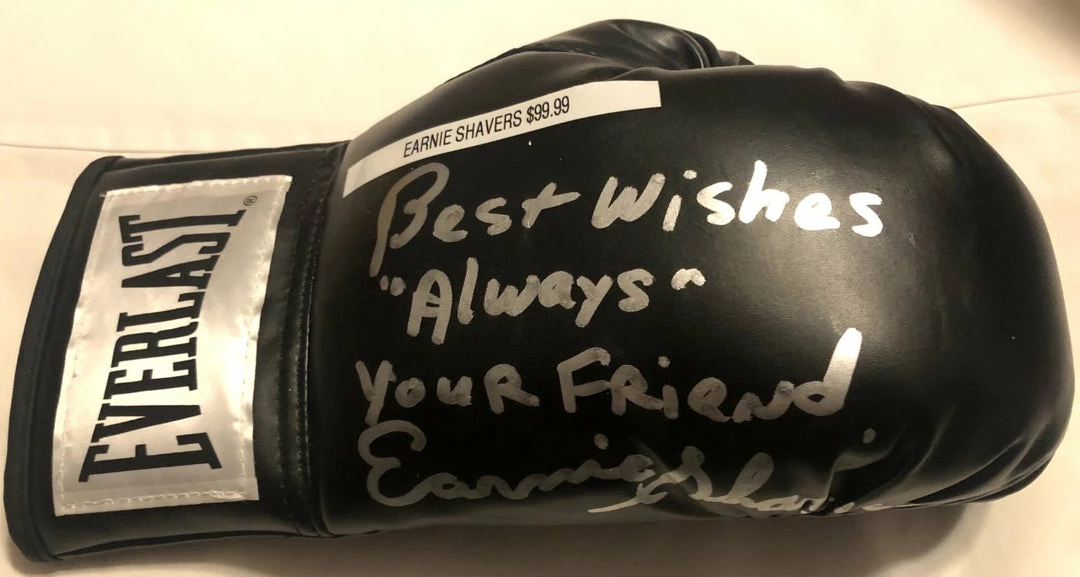 EARNIE SHAVERS $99.99
Best Wishes
"Always"
YOUR FRIEND
Earnie Shavers
EVERLAST®